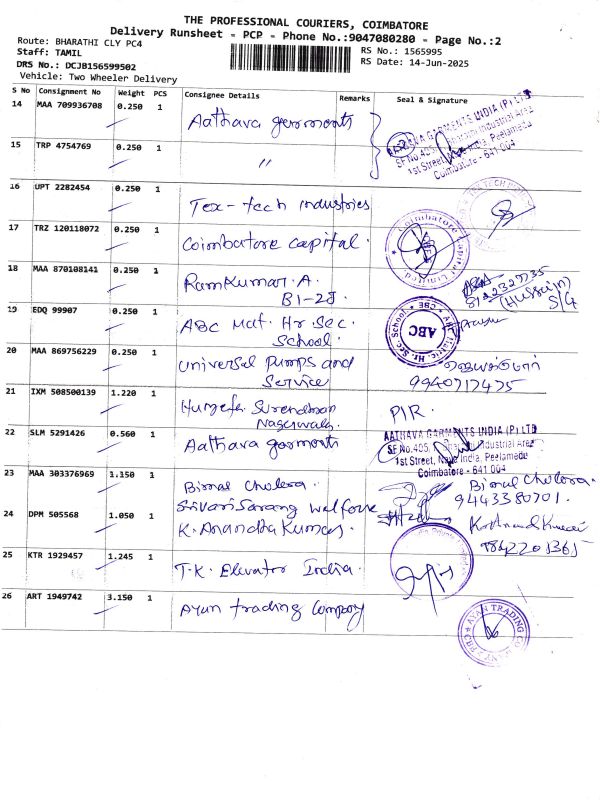 THE PROFESSIONAL COURIERS, COIMBATORE
Delivery Runsheet - PCP - Phone No.:9047080280 - Page No.:2
Route: BHARATHI CLY PC4
Staff: TAMIL
DRS No.: DCJB156599502
Vehicle: Two Wheeler Delivery
RS No.: 1565995
RS Date: 14-Jun-2025
S No Consignment No Weight PCS Consignee Details Remarks Seal & Signature
14 MAA 709936708 0.250 1 Aathava garments
AATHAVA GARMENTS INDIA (P) LTD
SF No.405, Industrial Area
1st Street, Nava India, Peelamedu
Coimbatore - 641 004
15 TRP 4754769 0.250 1 "
16 UPT 2282454 0.250 1 Tex-tech industries
17 TRZ 120118072 0.250 1 Coimbatore capital.
Coimbatore Capital Limited
18 MAA 870108141 0.250 1 Ramkumar.A.
B1-2J.
(Hussain)
S/G
19 EDQ 99907 0.250 1 ABC Mat. Hr Sec.
School.
ABC
CBE
20 MAA 869756229 0.250 1 Universal Pumps and
Service
9940717475
21 IXM 508500139 1.220 1 Huzefa Surendman
Nagarwala.
PIR.
22 SLM 5291426 0.560 1 Aathava garments
AATHAVA GARMENTS INDIA (P) LTD
SF No.405, Industrial Area
1st Street, Nava India, Peelamedu
Coimbatore - 641 004
23 MAA 303376969 1.150 1 Bimal Cholera.
Bimal Cholera.
9443380701.
24 DPM 505568 1.050 1 Sarang welfare
K. Anandha Kumar.
25 KTR 1929457 1.245 1 T.K. Elevator India.
26 ART 1949742 3.150 1 Ayan trading Company
AYAN TRADING COMPANY